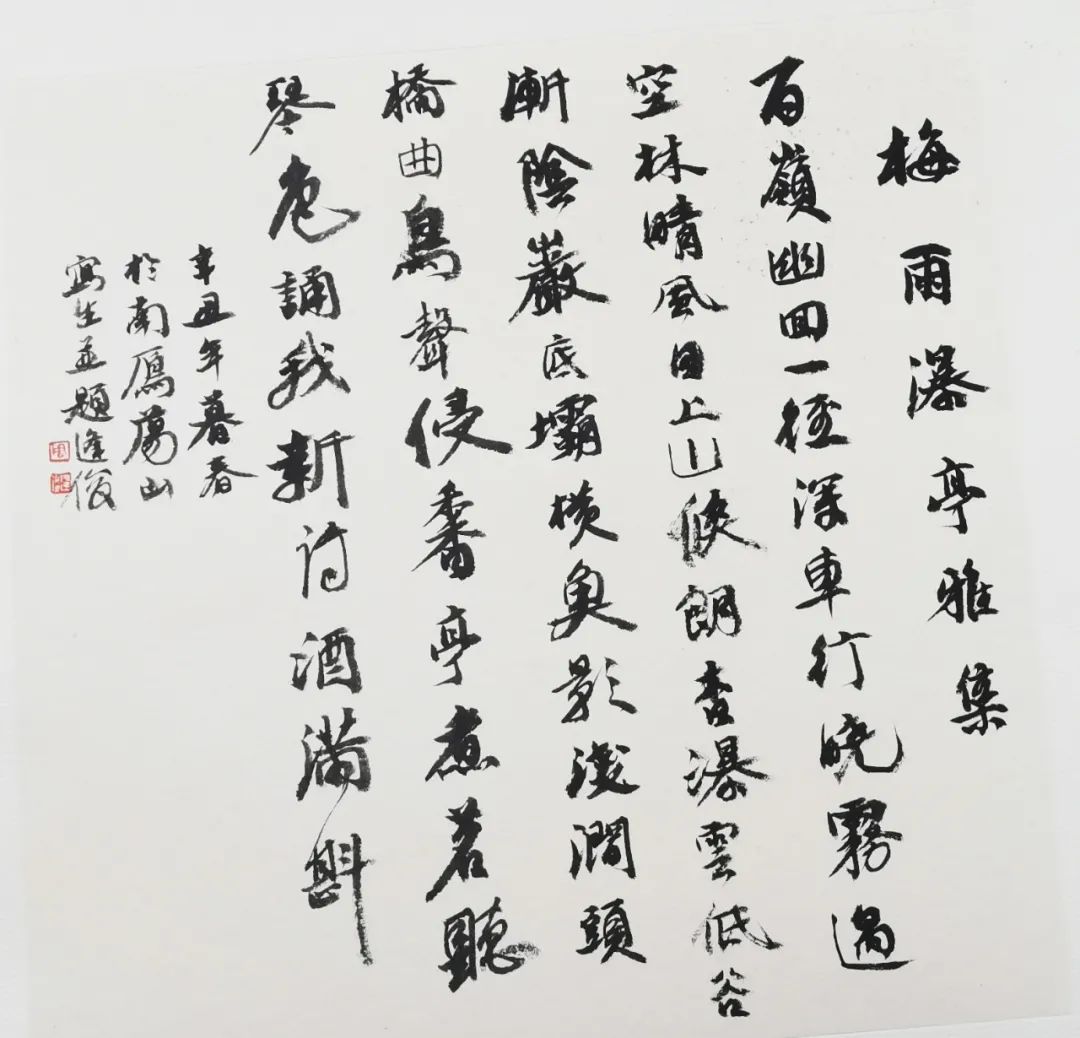 梅雨瀑亭雅集
百嶺幽囬一徑深車行晓霧過
空林晴風日上山倏朗杳瀑雲低谷
漸陰巖底壩橫魚影淺澗頭
橋曲鳥聲侵香亭煮茗聽
琴色誦我新詩酒滿斟
辛丑年暮春
於南鴈蕩山
寫生並題逢俊